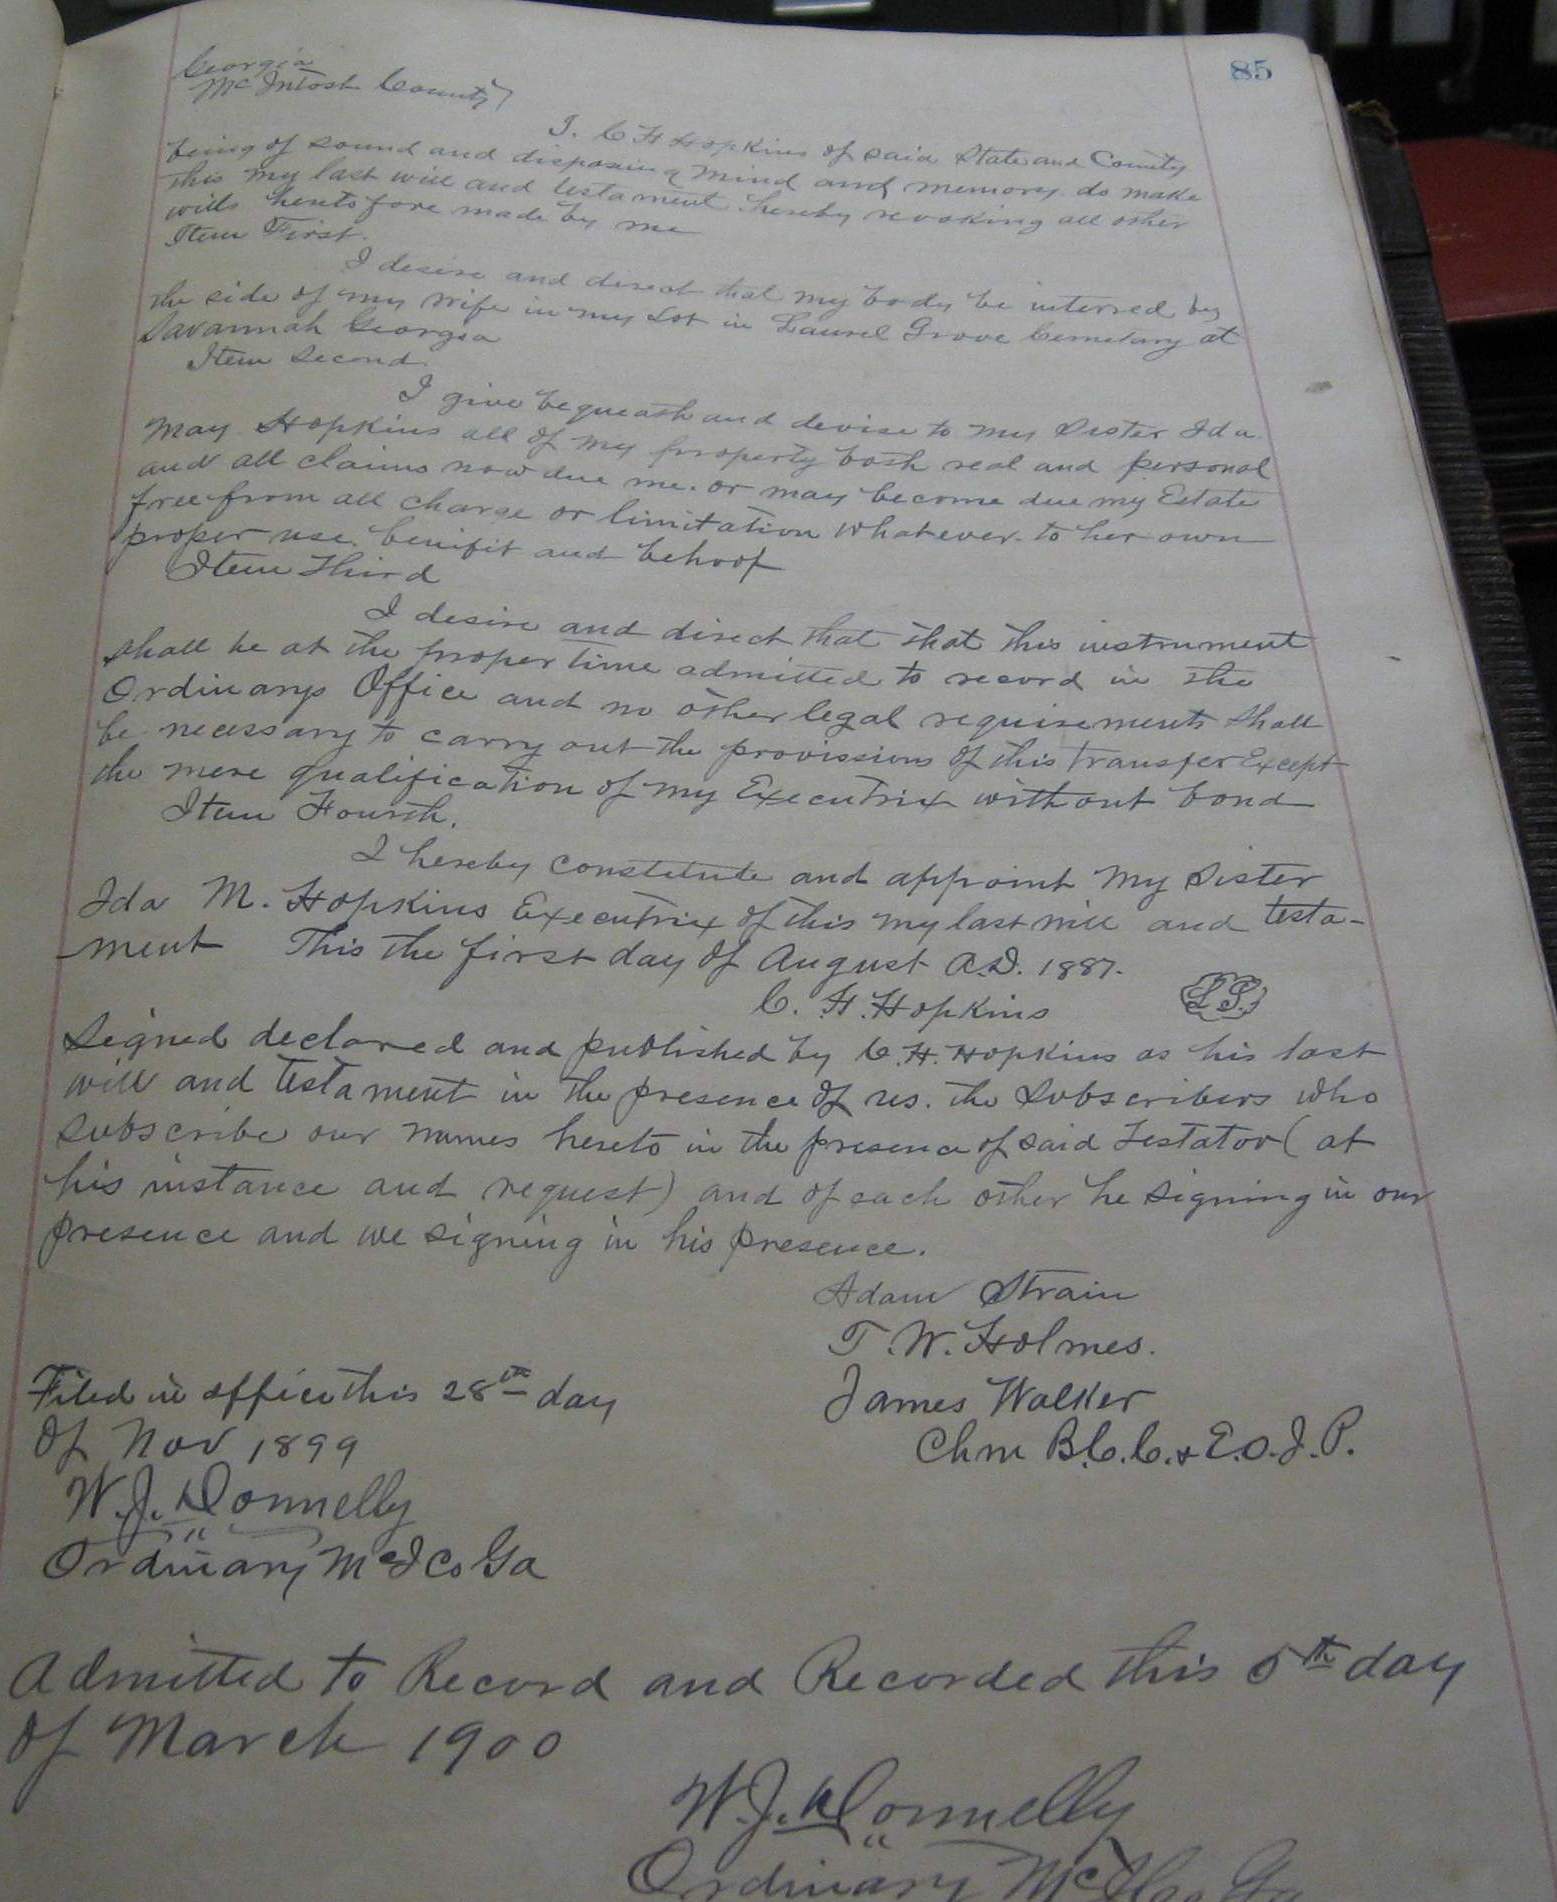 85
Georgia
McIntosh County
I. C H Hopkins of said State and County
being of sound and disposing mind and memory do make
this my last will and testament hereby revoking all other
wills heretofore made by me
Item First.
I desire and direct that my body be interred by
the side of my wife in my Lot in Laurel Grove Cemetary at
Savannah Georgia
Item Second.
I give bequeath and devise to my Sister Ida
May Hopkins all of my property both real and personal
and all claims now due me. or may become due my Estate
free from all charge or limitation whatever. to her own
proper use. benifit and behoof
Item Third
I desire and direct that that this instrument
shall be at the proper time admitted to record in the
Ordinarys Office and no other legal requirements shall
be necessary to carry out the provissions of this transfer Except
the mere qualification of my Executrix without bond
Item Fourth.
I hereby constitute and appoint my sister
Ida M. Hopkins Executrix of this my last will and testa-
-ment This the first day of August A.D. 1887.
C. H. Hopkins L.S.
Signed declared and published by C. H. Hopkins as his last
will and testament in the presence of us. the Subscribers who
subscribe our names hereto in the presence of said Testator (at
his instance and request) and of each other he signing in our
presence and we signing in his presence.
Adam Strain
T. W. Holmes.
James Walker
Chm B.C.C. & E.O.J.P.
Filed in office this 28th day
of Nov 1899
W. J. Donnelly
Ordinary McI Co Ga
Admitted to Record and Recorded this 5th day
of March 1900
W. J. Donnelly
Ordinary McI Co Ga